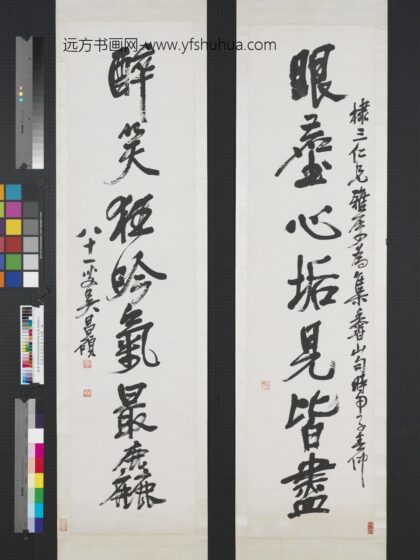 远方书画网-www.yfshuhua.com
眼塵心垢見皆盡
棣三仁兄雅屬為集香山句時甲子春仲
醉笑狂吟氣最麤
八十一叟吳昌碩